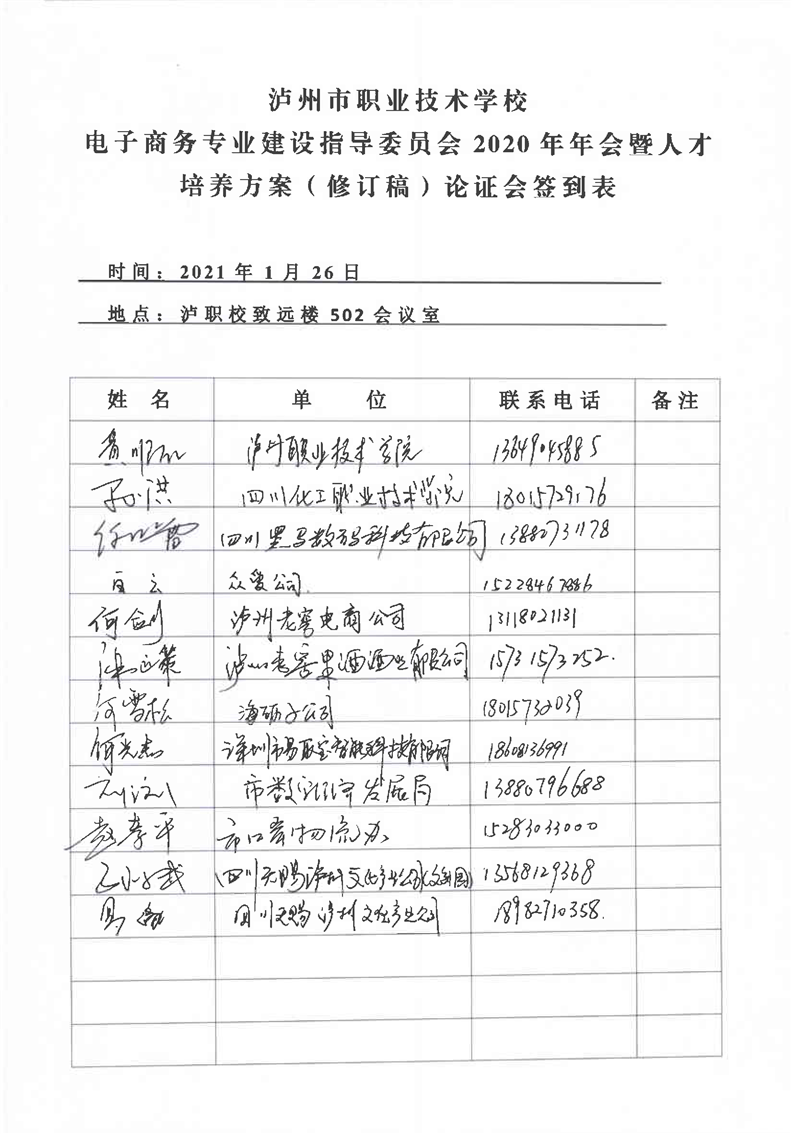 泸州市职业技术学校
电子商务专业建设指导委员会 2020 年年会暨人才
培养方案（修订稿）论证会签到表
时间：2021 年 1 月 26 日
地点：泸职校致远楼 502 会议室
姓 名 单 位 联系电话 备注
泸州职业技术学院 13649045885
孙洪 四川化工职业技术学院 18015729176
四川黑马数码科技有限公司 13882731178
百云 众爱公司 15228467886
何剑 泸州老窖电商公司 13118021131
泸州老窖果酒酒业有限公司 15731573252.
何雪松 公司 18015732039
何光杰 深圳市易联宝智能科技有限公司 18608136991
市数字经济发展局 13880796688
赵孝平 市口岸物流办 15283033000
四川天赐泸州文化产业公司 13568129368
马 四川天赐泸州文化产业公司 18982710358.